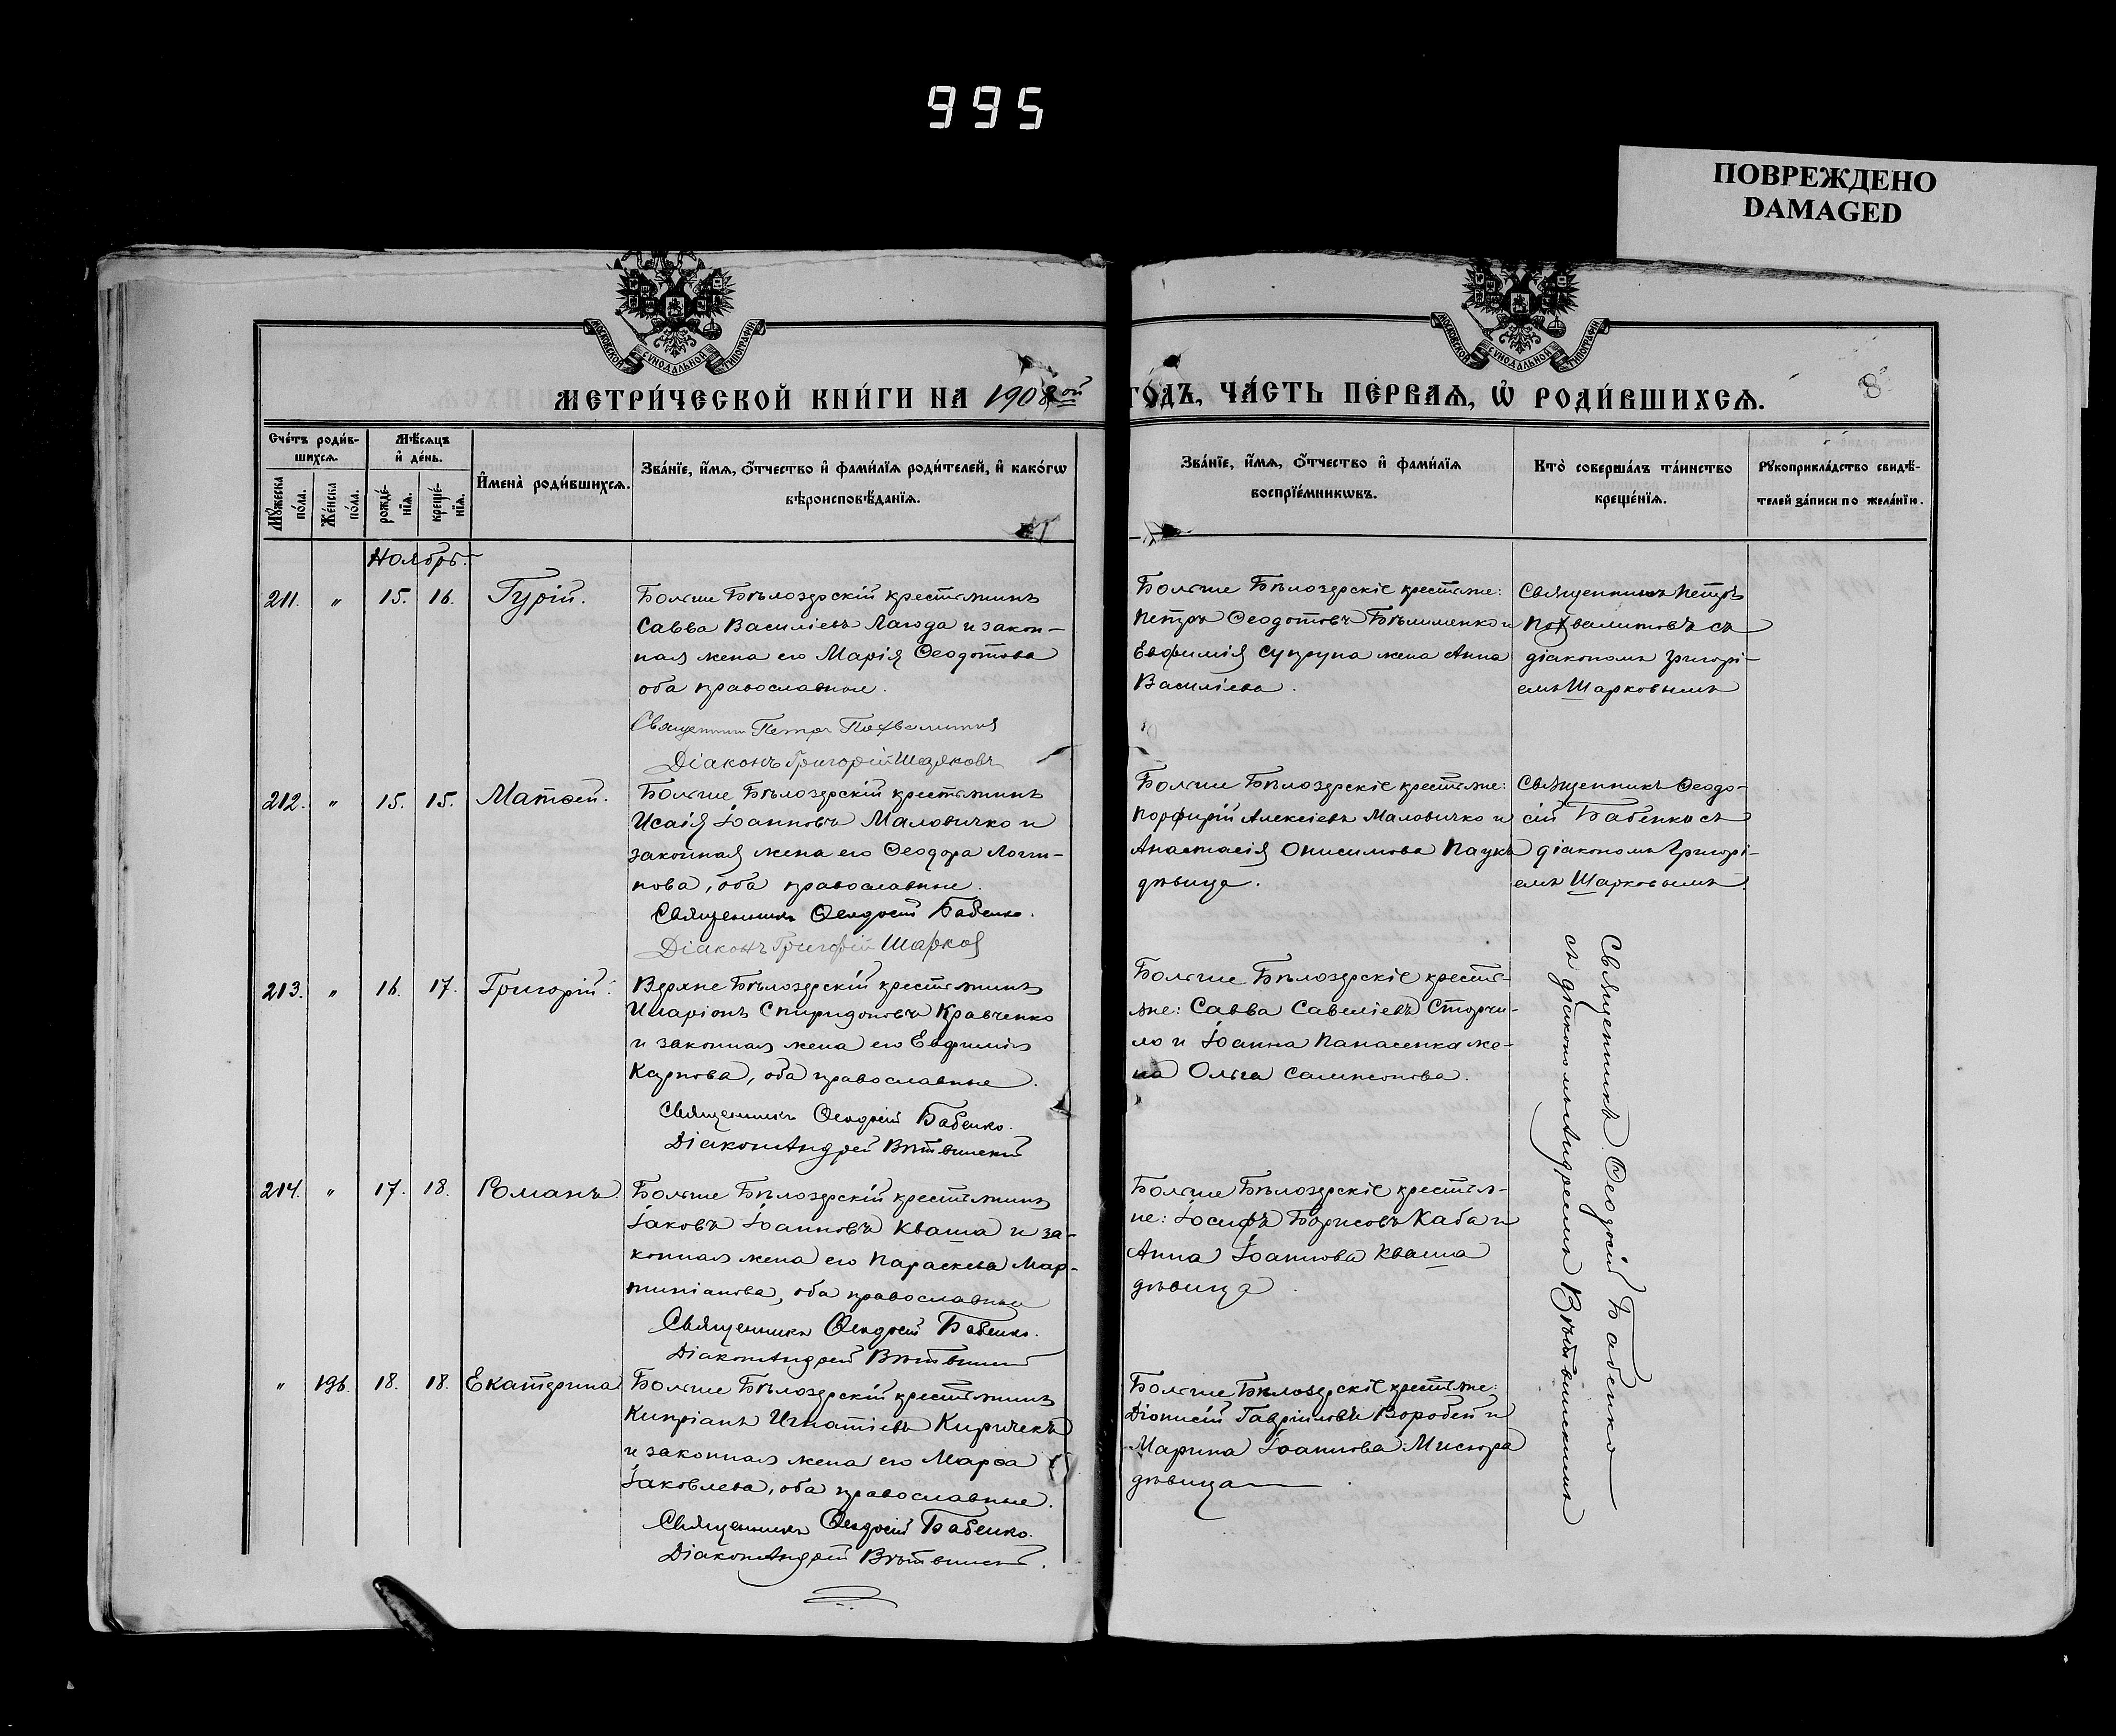 995
ПОВРЕЖДЕНО
DAMAGED
МОСКОВСКОЙ СѴНОДАЛЬНОЙ ТИПОГРАФІИ
МОСКОВСКОЙ СѴНОДАЛЬНОЙ ТИПОГРАФІИ
МЕТРИ́ЧЕСКОЙ КНИ́ГИ НА 1908ой ГО́ДЪ, ЧА́СТЬ ПЕ́РВАѦ, Ѽ РОДИ́ВШИХСѦ.
8
Сче́тъ роди́в-
шихсѧ.
Мѣ́сѧцъ
и҆ де́нь.
Мꙋ́жеска
по́ла.
Же́нска
по́ла.
рожде́-
нїѧ.
креще́-
нїѧ.
И҆мена̀ роди́вшихсѧ.
Зва́нїе, и҆́мѧ, ѻ҆́тчество и҆ фами́лїѧ роди́телей, и҆ како́гѡ
вѣроисповѣ́данїѧ.
Зва́нїе, и҆́мѧ, ѻ҆́тчество и҆ фами́лїѧ
воспрїе́мникѡвъ.
Кто̀ соверша́лъ та́инство
креще́нїѧ.
Рꙋкоприкла́дство свидѣ́-
телей за́писи по жела́нїю.
Ноябрь.
211. " 15. 16. Гурій.
Больше Бѣлозерскій крестьянинъ
Савва Василіевъ Лагода и закон-
ная жена его Марія Ѳеодотова
оба православные.
Священник Петр Похвалитов
Діаконъ Григорій Шарковъ
Больше Бѣлозерскіе крестьяне:
Петръ Ѳеодотовъ Бѣлименко и
Евфимія Супруна жена Анна
Василіева.
Священникъ Петръ
Похвалитовъ съ
діакономъ Григорі-
емъ Шарковымъ
212. " 15. 15. Матѳей.
Больше Бѣлозерскій крестьянинъ
Исаія Іоанновъ Маловичко и
законная жена его Ѳеодора Логги-
нова, оба православные.
Священникъ Ѳеодосій Бабенко.
Діаконъ Григорій Шарков
Больше Бѣлозерскіе крестьяне:
Порфирій Алексіевъ Маловичко и
Анастасія Онисимова Паукъ
дѣвица.
Священникъ Ѳеодо-
сій Бабенко съ
діакономъ Григорі-
емъ Шарковымъ
213. " 16. 17. Григорій.
Верхне Бѣлозерскій крестьянинъ
Иларіонъ Спиридоновъ Кравченко
и законная жена его Евфимія
Карпова, оба православные.
Священникъ Ѳеодосій Бабенко.
Діаконъ Андрей Вѣтвинскій
Больше Бѣлозерскіе крестья-
не: Савва Савеліевъ Сторчи-
ло и Іоанна Панасенка же-
на Ольга Сампсонова.
Священникъ Ѳеодосій Бабенко
съ діакономъ Андреемъ Вѣтвинскимъ
214. " 17. 18. Романъ.
Больше Бѣлозерскій крестьянинъ
Іаковъ Іоанновъ Кваша и за-
конная жена его Параскева Мар-
тиніанова, оба православные
Священникъ Ѳеодосій Бабенко.
Діаконъ Андрей Вѣтвинскій
Больше Бѣлозерскіе крестья-
не: Іосифъ Борисовъ Каба и
Анна Іоаннова Кваша
дѣвица.
" 196. 18. 18. Екатерина
Больше Бѣлозерскій крестьянинъ
Кипріанъ Игнатіевъ Киричекъ
и законная жена его Марѳа
Іаковлева, оба православные.
Священникъ Ѳеодосій Бабенко.
Діаконъ Андрей Вѣтвинскій.
Больше Бѣлозерскіе крестьяне:
Діонисій Гавріиловъ Воробей и
Марина Іоаннова Мисюра
дѣвица